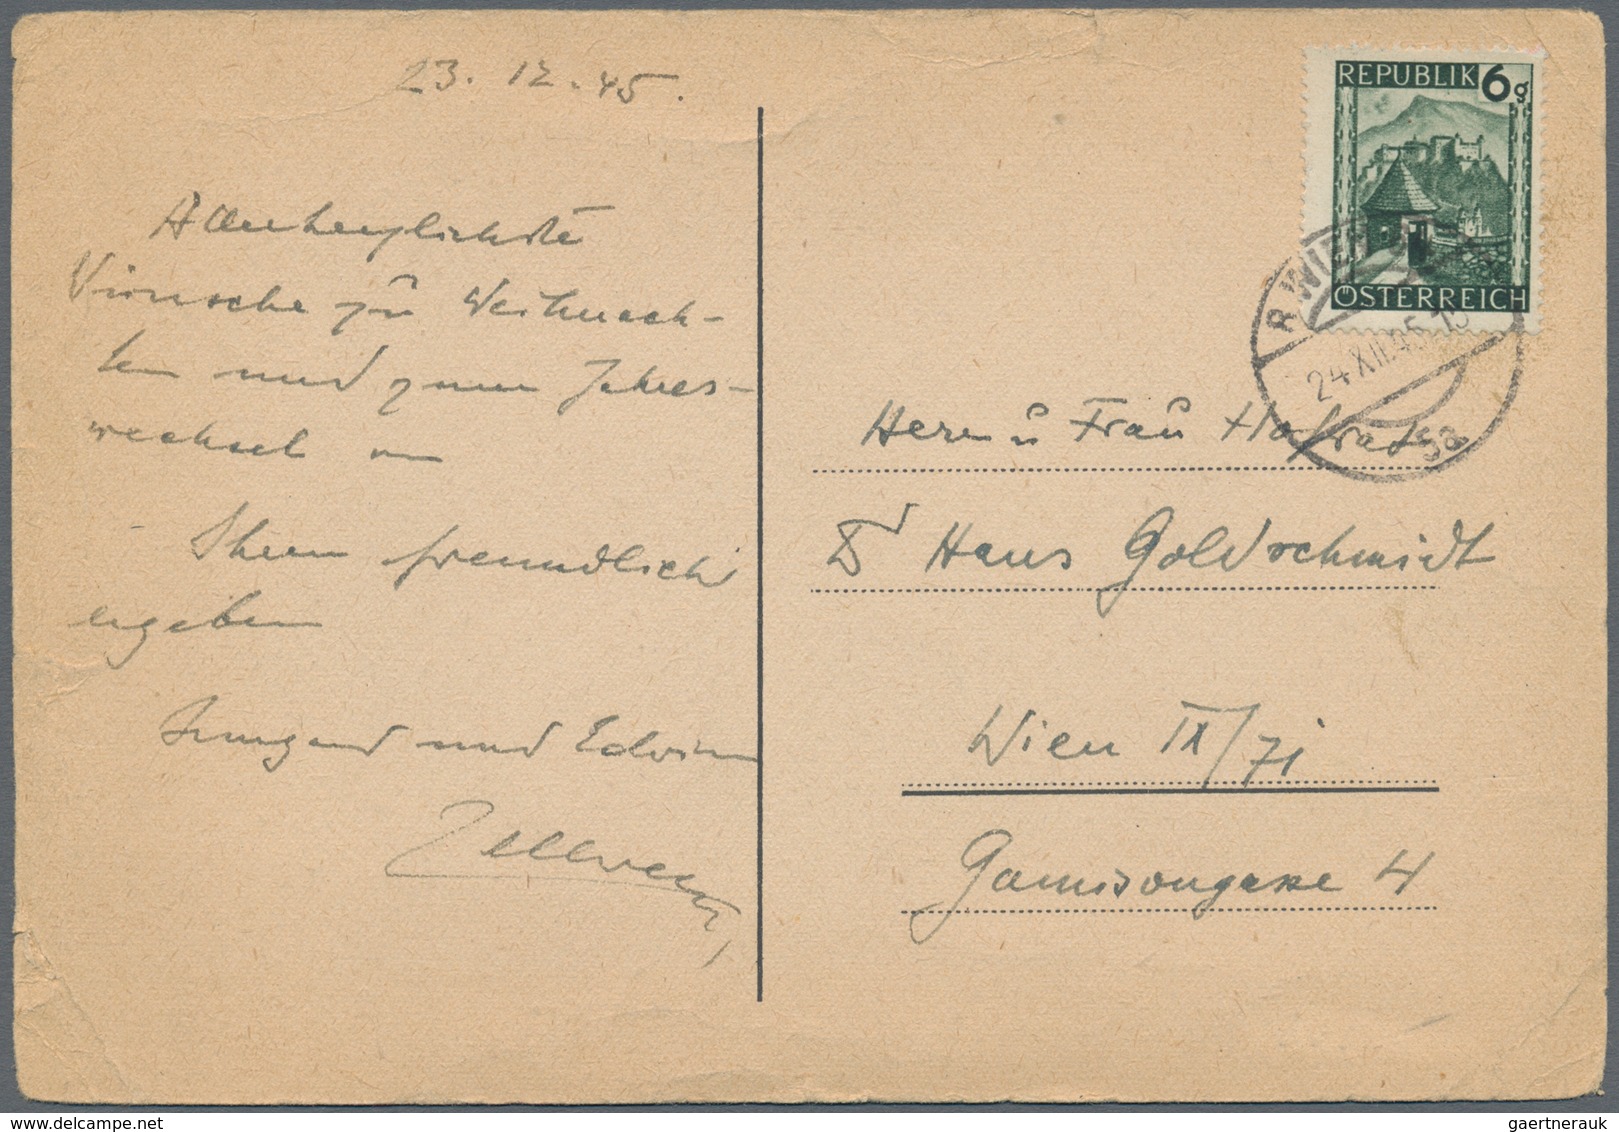 23. 12. 45.
Allerherzlichste
Wünsche zu Weihnach-
ten und zum Jahres-
wechsel von
Ihren freundlich
ergeben
Irmgard und Edwin
REPUBLIK 6g
ÖSTERREICH
WIEN
24.XII.45.15
9a
Herrn u Frau Hofrat
Dr Hans Goldschmidt
Wien IX/71
Garnisongasse 4
gaertnerauk